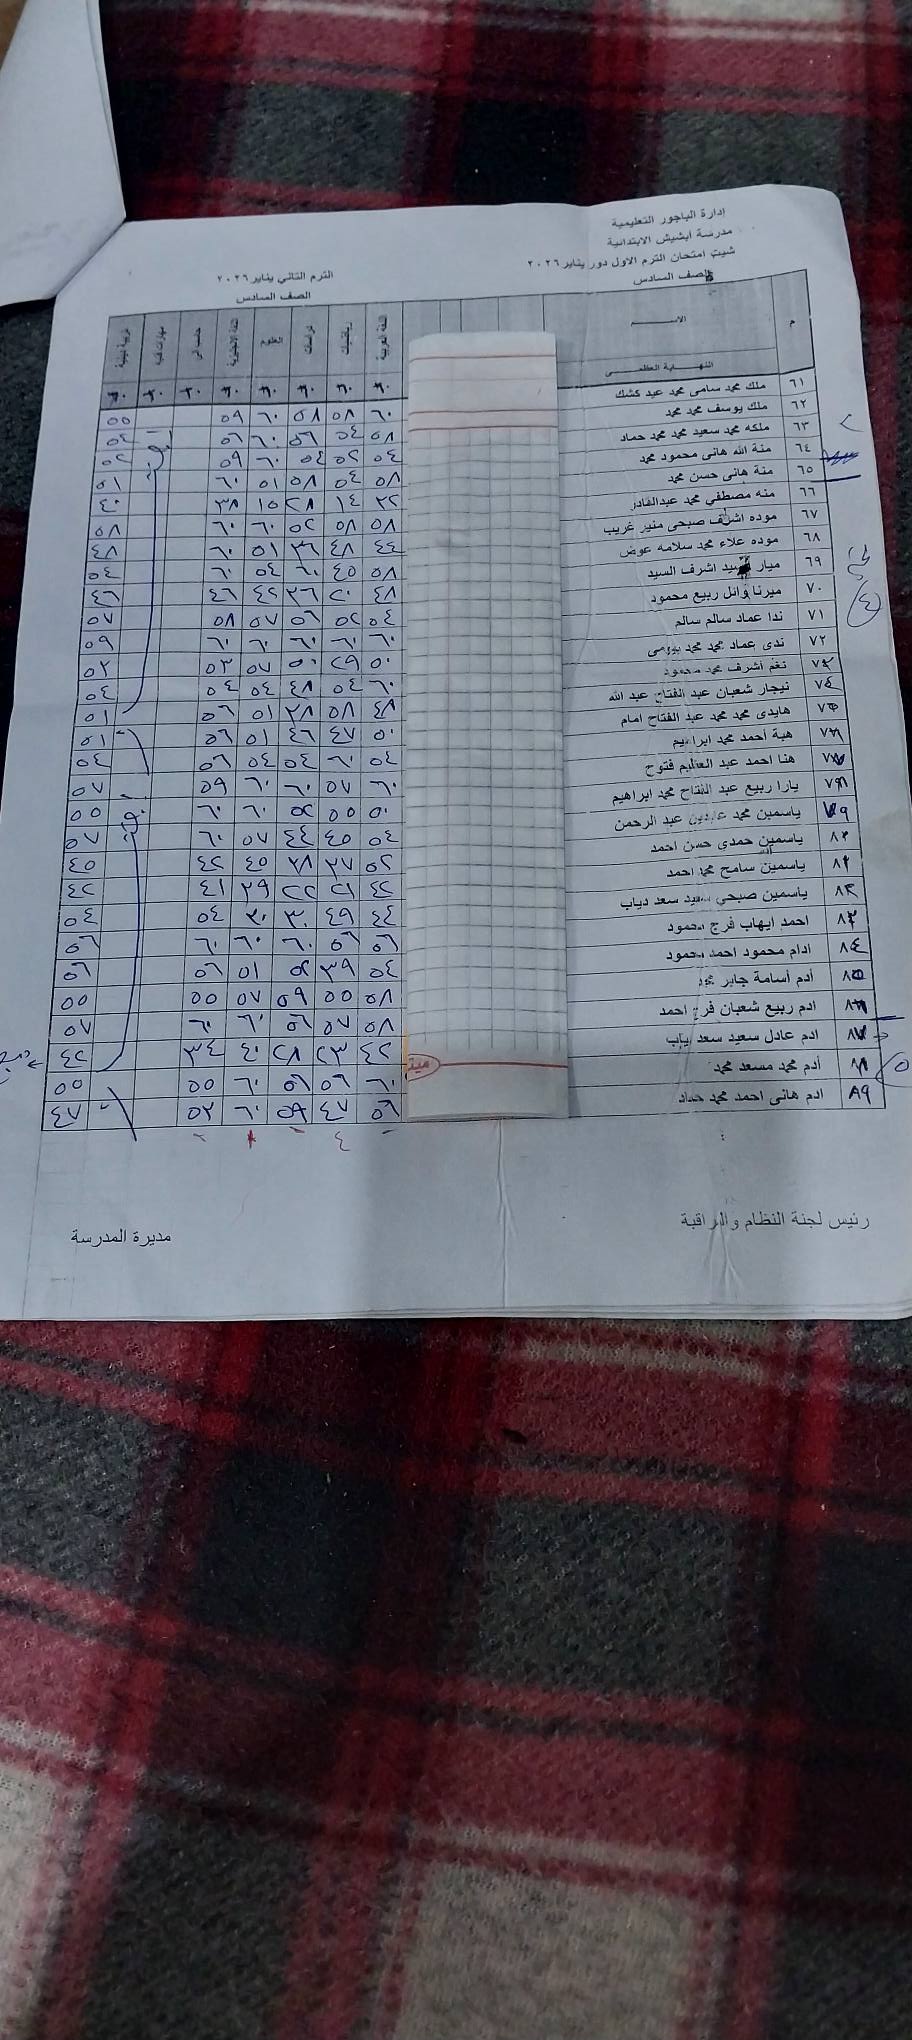 إدارة الباجور التعليمية
مدرسة أبشيش الابتدائية
شيت امتحان الترم الاول دور يناير ٢٠٢٦
الصف السادس
الترم الثاني يناير ٢٠٢٦
الصف السادس
م الاســـم اللغة العربية رياضيات دراسات العلوم اللغة الانجليزية حاسب الى مهارات فنية تربية دينية
النهـــاية العظمـــى ٦٠ ٦٠ ٦٠ ٦٠ ٦٠ ٢٠ ٢٠ ٦٠
٦١ ملك محمد سامى محمد عيد كشك ٦٠ ٥٨ ٥٨ ٦٠ ٥٩ ٥٥
٦٢ ملك يوسف محمد محمد ٥٨ ٥٤ ٥٦ ٦٠ ٥٦ ٥٤
٦٣ ملكه محمد سعيد محمد محمد حماد ٥٤ ٥٢ ٥٤ ٦٠ ٥٩ ٥٢
٦٤ منة الله هانى محمود محمد ٥٨ ٥٤ ٥٨ ٥١ ٦٠ ٥١
٦٥ منة هانى حسن محمد ٢٢ ١٤ ٢٨ ١٥ ٣٨ ٤٠
٦٦ منه مصطفي محمد عبدالقادر ٥٨ ٥٨ ٥٢ ٦٠ ٦٠ ٥٨
٦٧ موده اشرف صبحى منير غريب ٤٤ ٤٨ ٣٦ ٥١ ٦٠ ٤٨
٦٨ موده علاء محمد سلامه عوض ٥٨ ٤٥ ٦٠ ٥٤ ٦٠ ٥٤
٦٩ ميار السيد اشرف السيد ٤٨ ٢٠ ٢٦ ٤٢ ٤٦ ٤٦
٧٠ ميرنا وائل ربيع محمود ٥٤ ٥٢ ٥٦ ٥٧ ٥٨ ٥٧
٧١ ندا عماد سالم سالم ٦٠ ٦٠ ٦٠ ٦٠ ٦٠ ٥٩
٧٢ ندى عماد محمد محمد بيومى ٥٠ ٢٩ ٥٠ ٥٧ ٥٣ ٥٢
٧٣ نغم اشرف محمد محمود ٦٠ ٥٤ ٤٨ ٥٤ ٥٤ ٥٤
٧٤ نيجار شعبان عبد الفتاح عبد الله ٤٨ ٥٨ ٣٨ ٥١ ٥٦ ٥١
٧٥ هايدى محمد محمد عبد الفتاح امام ٥٠ ٤٧ ٤٦ ٥١ ٥٦ ٥١
٧٦ هبة أحمد محمد ابراهيم ٥٤ ٦٠ ٥٤ ٥٤ ٥٦ ٥٤
٧٧ هنا احمد عبد العظيم فتوح ٦٠ ٥٧ ٦٠ ٦٠ ٥٩ ٥٧
٧٨ يارا ربيع عبد الفتاح محمد ابراهيم ٥٠ ٥٥ ٥٢ ٦٠ ٦٠ ٥٥
٧٩ ياسمين محمد عابدين عبد الرحمن ٥٤ ٤٥ ٤٤ ٥٧ ٦٠ ٥٧
٨٠ ياسمين حمدى حسن احمد ٥٢ ٣٧ ٣٨ ٤٥ ٤٢ ٤٥
٨١ ياسمين سامح محمد احمد ٤٢ ٢١ ٢٢ ٣٩ ٤١ ٤٢
٨٢ ياسمين صبحى سعيد سعد دياب ٤٤ ٤٩ ٣٠ ٣٠ ٥٤ ٥٤
٨٣ احمد ايهاب فرج محمود ٥٦ ٥٦ ٦٠ ٦٠ ٦٠ ٥٦
٨٤ ادام محمود احمد محمود ٥٤ ٣٩ ٥٢ ٥١ ٥٦ ٥٦
٨٥ أدم أسامة جابر ٥٨ ٥٥ ٥٩ ٥٧ ٥٥ ٥٥
٨٦ ادم ربيع شعبان فرج احمد ٥٨ ٥٧ ٥٦ ٦٠ ٦٠ ٥٧
٨٧ ادم عادل سعيد سعد دياب ٤٢ ٢٣ ٢٨ ٤٠ ٣٤ ٤٢
٨٨ أدم محمد مسعد محمد ٦٠ ٥٦ ٥٦ ٦٠ ٥٥ ٥٥
٨٩ ادم هانى احمد محمد حماد ٥٦ ٤٧ ٥٩ ٦٠ ٥٢ ٤٧
رئيس لجنة النظام والمراقبة
مديرة المدرسة